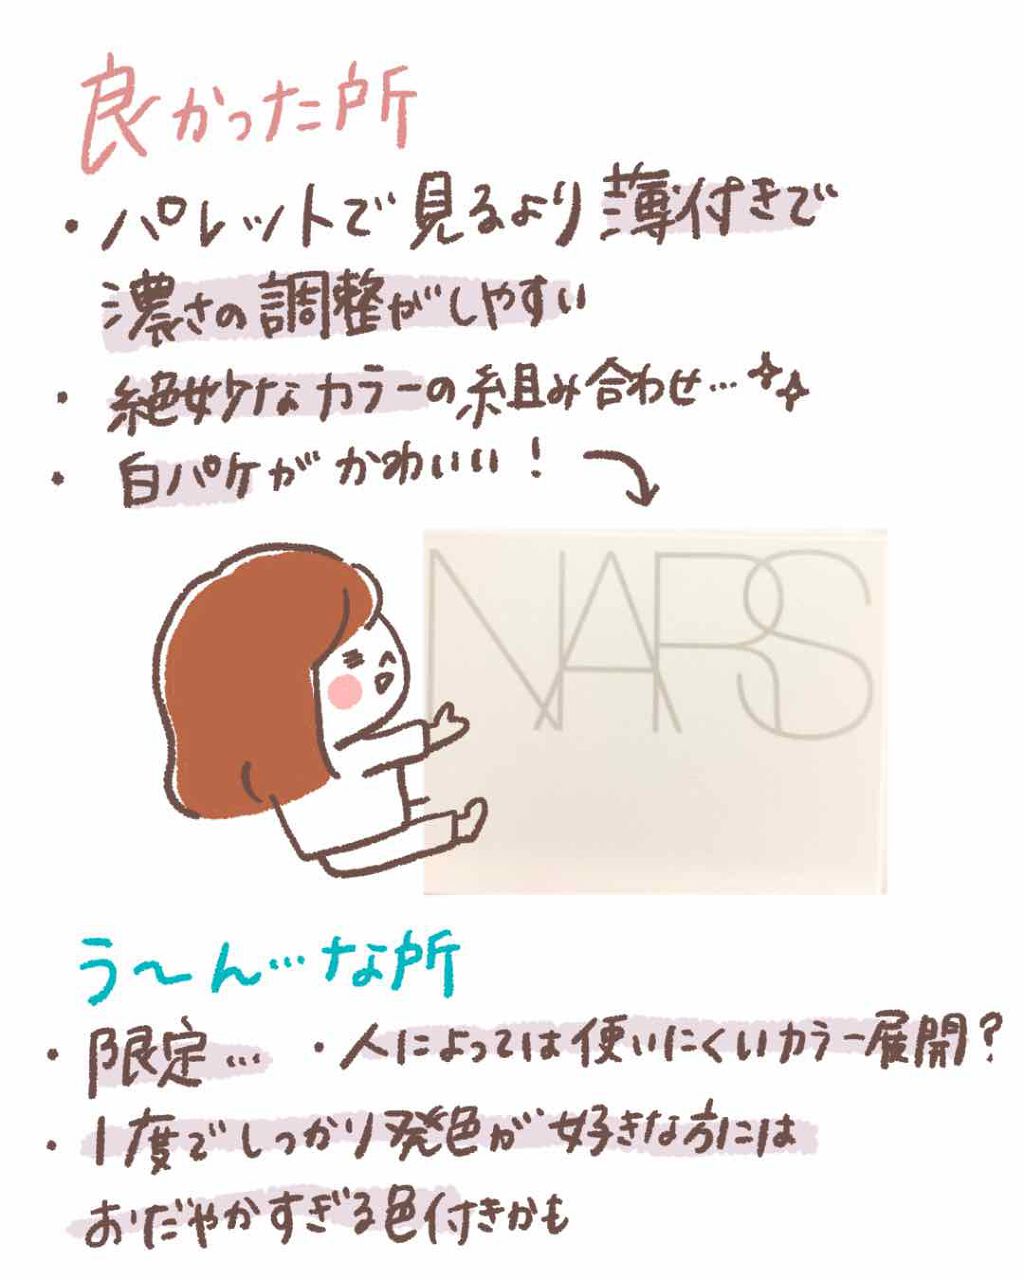 良かった所
・パレットで見るより薄付きで
濃さの調整がしやすい
・絶妙なカラーの組み合わせ…
・白パケがかわいい!
NARS
う〜ん…な所
・限定… ・人によっては使いにくいカラー展開?
・1度でしっかり発色が好きな方には
おだやかすぎる色付きかも